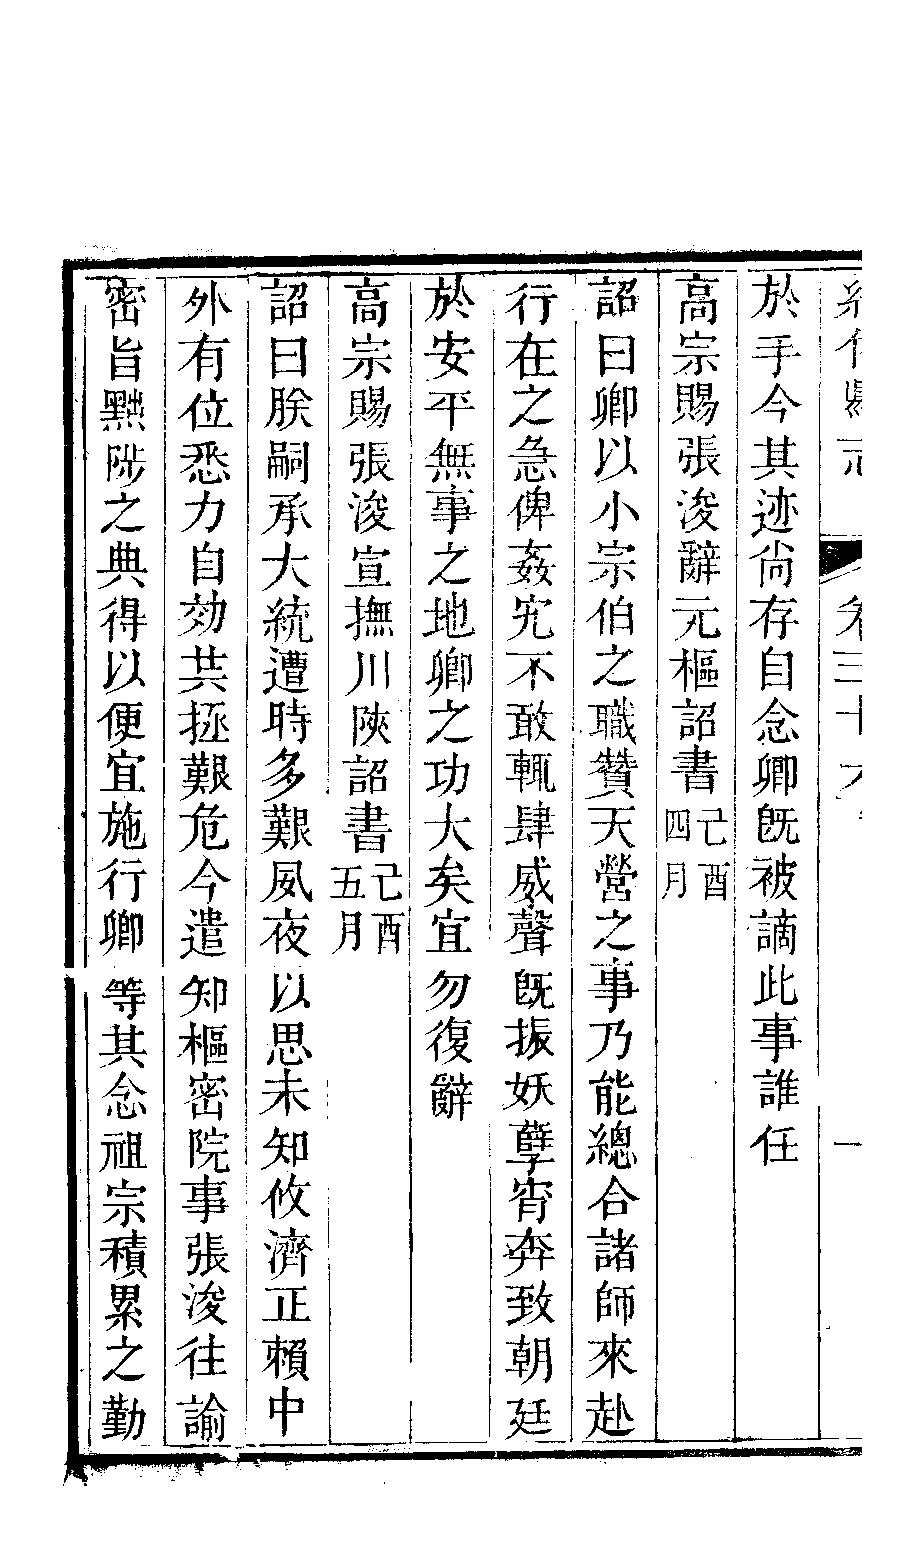 卷三十六
一
於手今其迹尚存自念卿旣被謫此事誰任
高宗賜張浚辭元樞詔書己酉四月
詔曰卿以小宗伯之職贊天營之事乃能總合諸師來赴
行在之急俾姦宄不敢輒肆威聲旣振妖孽宵奔致朝廷
於安平無事之地卿之功大矣宜勿復辭
高宗賜張浚宣撫川陝詔書己酉五月
詔曰朕嗣承大統遭時多艱夙夜以思未知攸濟正賴中
外有位悉力自効共拯艱危今遣知樞密院事張浚往諭
密旨黜陟之典得以便宜施行卿等其念祖宗積累之勤